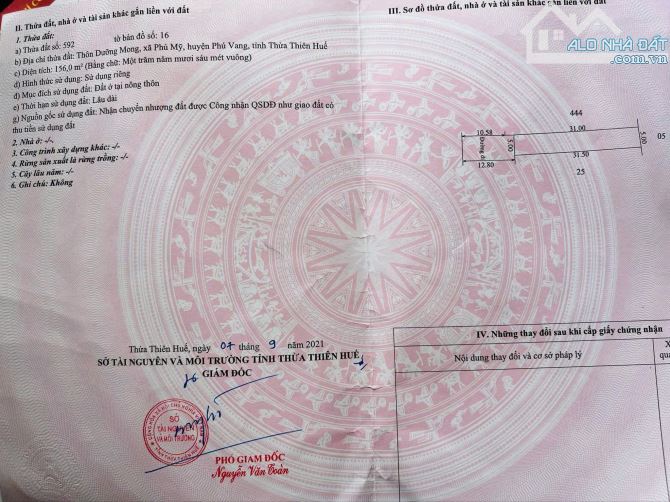 II. Thửa đất, nhà ở và tài sản khác gắn liền với đất
1. Thửa đất:
a) Thửa đất số: 592 tờ bản đồ số: 16
b) Địa chỉ thửa đất: Thôn Dưỡng Mong, xã Phú Mỹ, huyện Phú Vang, tỉnh Thừa Thiên Huế
c) Diện tích: 156,0 m² (Bằng chữ: Một trăm năm mươi sáu mét vuông)
d) Hình thức sử dụng: Sử dụng riêng
đ) Mục đích sử dụng đất: Đất ở tại nông thôn
e) Thời hạn sử dụng đất: Lâu dài
g) Nguồn gốc sử dụng đất: Nhận chuyển nhượng đất được Công nhận QSDĐ như giao đất có
thu tiền sử dụng đất
2. Nhà ở: -/-
3. Công trình xây dựng khác: -/-
4. Rừng sản xuất là rừng trồng: -/-
5. Cây lâu năm: -/-
6. Ghi chú: Không
Thừa Thiên Huế, ngày 07 tháng 9 năm 2021
SỞ TÀI NGUYÊN VÀ MÔI TRƯỜNG TỈNH THỪA THIÊN HUẾ
GIÁM ĐỐC
SỞ
TÀI NGUYÊN
VÀ MÔI TRƯỜNG
PHÓ GIÁM ĐỐC
Nguyễn Văn Toàn
III. Sơ đồ thửa đất, nhà ở và tài sản khác gắn liền với đất
ALO NHÀ ĐẤT
444
10.58
31.00
5.00
5.00
05
Đường đi
12.80
31.50
25
IV. Những thay đổi sau khi cấp giấy chứng nhận
Nội dung thay đổi và cơ sở pháp lý